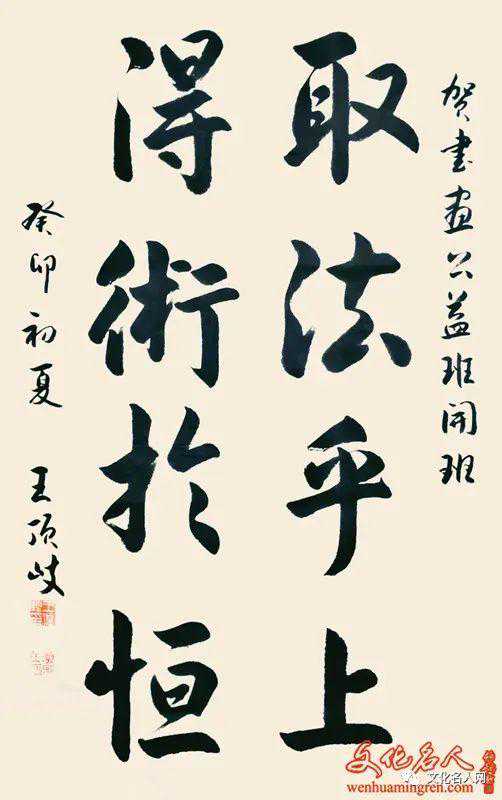 贺书画公益班开班
取法乎上
得術於恒
癸卯初夏 王顶岐
文化名人
wenhuamingren.com
文化名人网